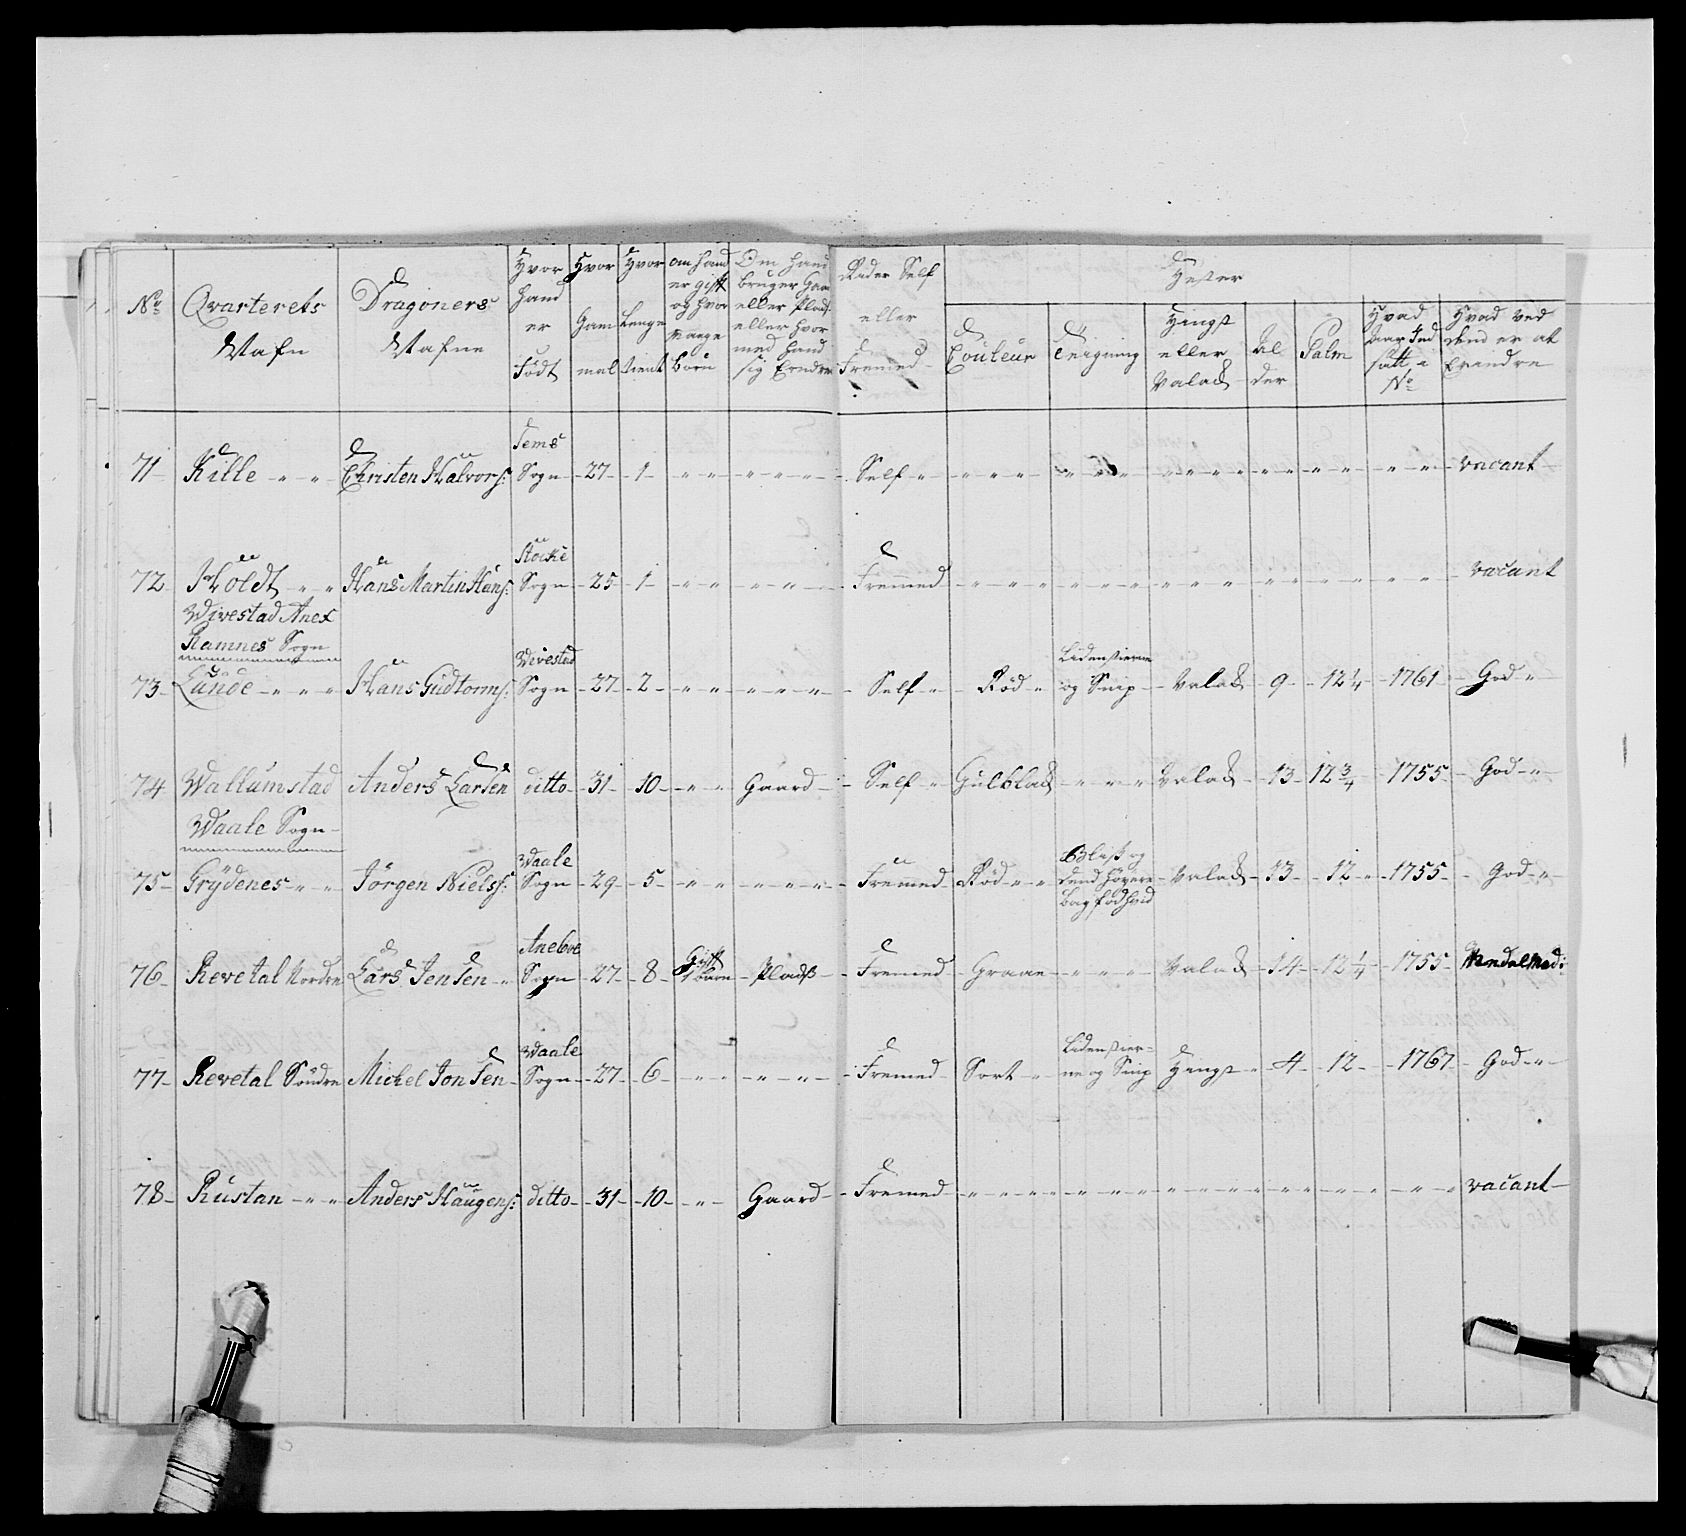 No
Qvarterets Nafn
Dragoners Nafne
Hvor hand er Födt
Hvor Gam mel
Hvor Lenge tient
om hand er gift og hvor mange börn
Om hand bruger Gaar eller Plads eller hvor med hand sig Erndrer
Rider Self eller Fremed
Hester
Couleur
Teigning
Hingst eller Valack
Al der
Palm
Hvad Aar Ind satt No
Hvad ved dend er at Erindre
71 Kille " " Christen Halvors: Sems Sogn 27 1 " " " " " Self " " " " " " " " " " " " vacant
72 Höldt " " Hans Martin Hans: Stocke Sogn 25 1 " " " " Fremmed " " " " " " " " " " vacant
Wivestad Anex
Ramnes Sogn
73 Lunde " " " Hans Gudtorms: Wivestad Sogn 27 2 " " " " " Self " Röd " Liden stierne og Snip Valack 9 12 1/4 1761 God "
74 Wallumstad Anders Larsen ditto 31 10 " " Gaard Self " Gulblack " " " Valack 13 12 3/4 1755 God "
Waale Sogn
75 Grydenes " " Jörgen Niels: Waale Sogn 29 5 " " " " " Fremed Röd " " Bliss og dend höyere bag fod hvid Valack 13 12 " 1755 God "
76 Revetal Nordre Lars Jensen " Aneboe Sogn 27 8 Gift 1 barn Plads Fremed Graae " " " Valack 14 12 1/4 1755 Mandelmad:
77 Revetal Söndre Michel Jonsen Waale Sogn 27 6 " " " " Fremed Sort " Liden stierne og Snip Hingst " 4 12 1767 God "
78 Rustan " " Anders Haugens: ditto 31 10 " " Gaard Fremed " " " " " " " " " " vacant